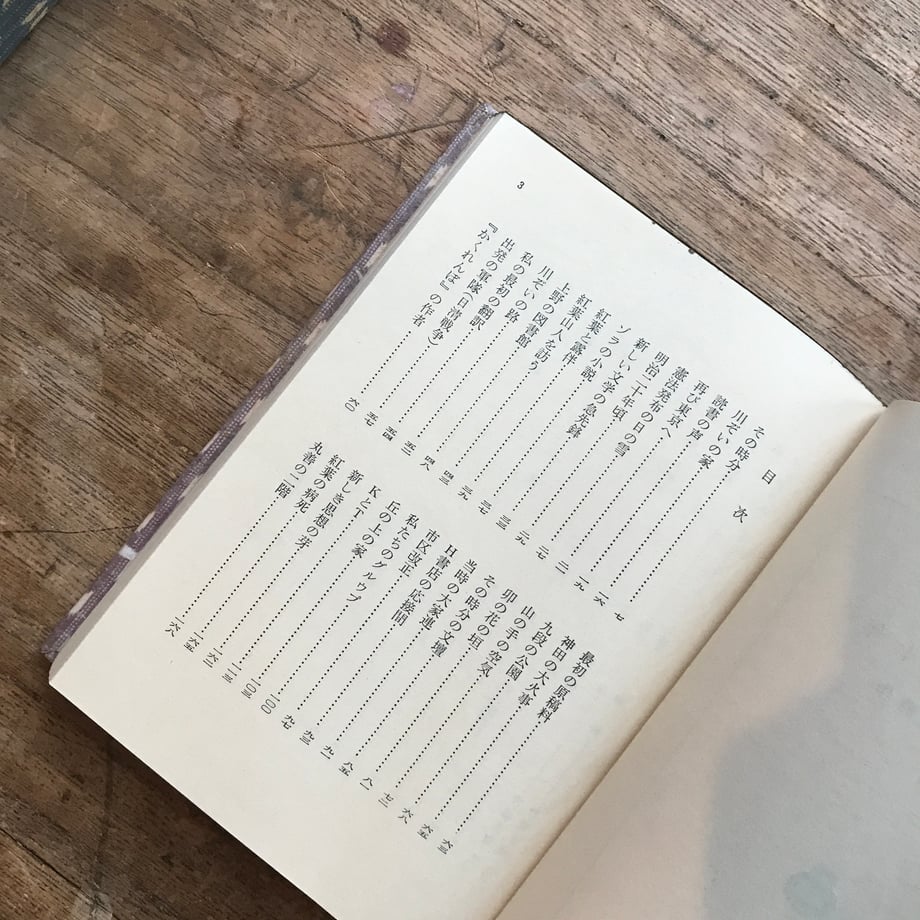 3
目次
その時分……七
川ぞいの家……一六
読書の声……一九
再び東京へ
憲法発布の日の雪……二七
明治二十年頃……二九
新しい文学の急先鋒……三三
ゾラの小説……三七
紅葉と露伴……三九
紅葉山人を訪う……四三
上野の図書館
川ぞいの路
私の最初の翻訳……五四
出発の軍隊(日清戦争)……五七
『かくれんぼ』の作者……六〇
最初の原稿料……六三
神田の大火事……六五
九段の公園……六八
山の手の空気……七二
卯の花の垣……八一
その時分の文壇……八五
当時の大家連……九一
H書店の応接間……九三
市区改正……九七
私たちのグルウプ……一〇〇
丘の上の家……一〇三
KとT……一一三
新しき思想の芽
紅葉の病死……一六五
丸善の二階……一六八